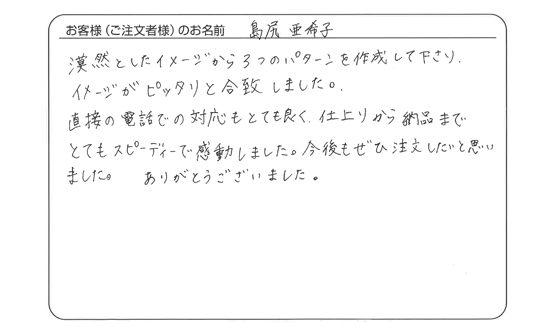 お客様（ご注文者様）のお名前 島尻 亜希子
漠然としたイメージから3つのパターンを作成して下さり、
イメージがピッタリと合致しました。
直接の電話での対応もとても良く、仕上りから納品まで
とてもスピーディーで感動しました。今後もぜひ注文したいと思い
ました。 ありがとうございました。